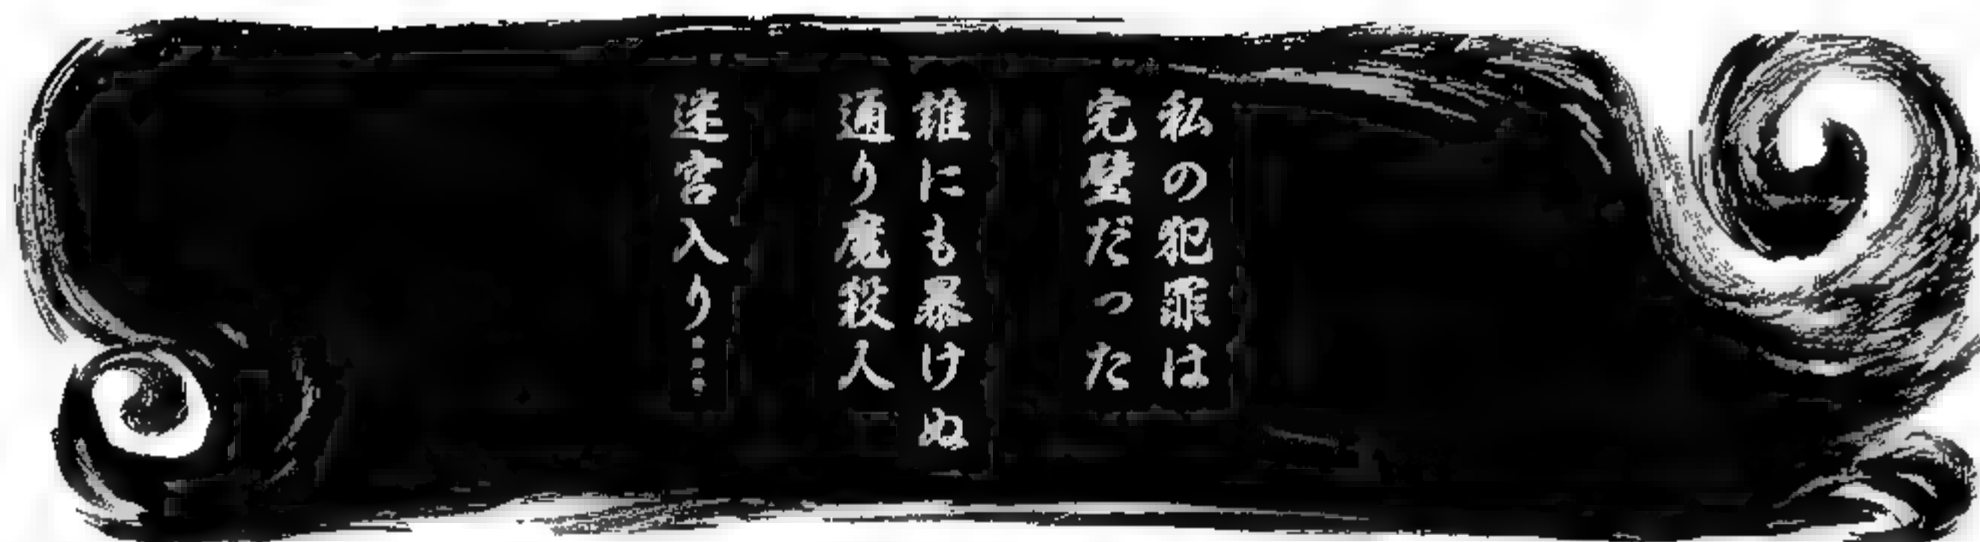 私の犯罪は
完璧だった
誰にも暴けぬ
通り魔殺人
迷宮入り…